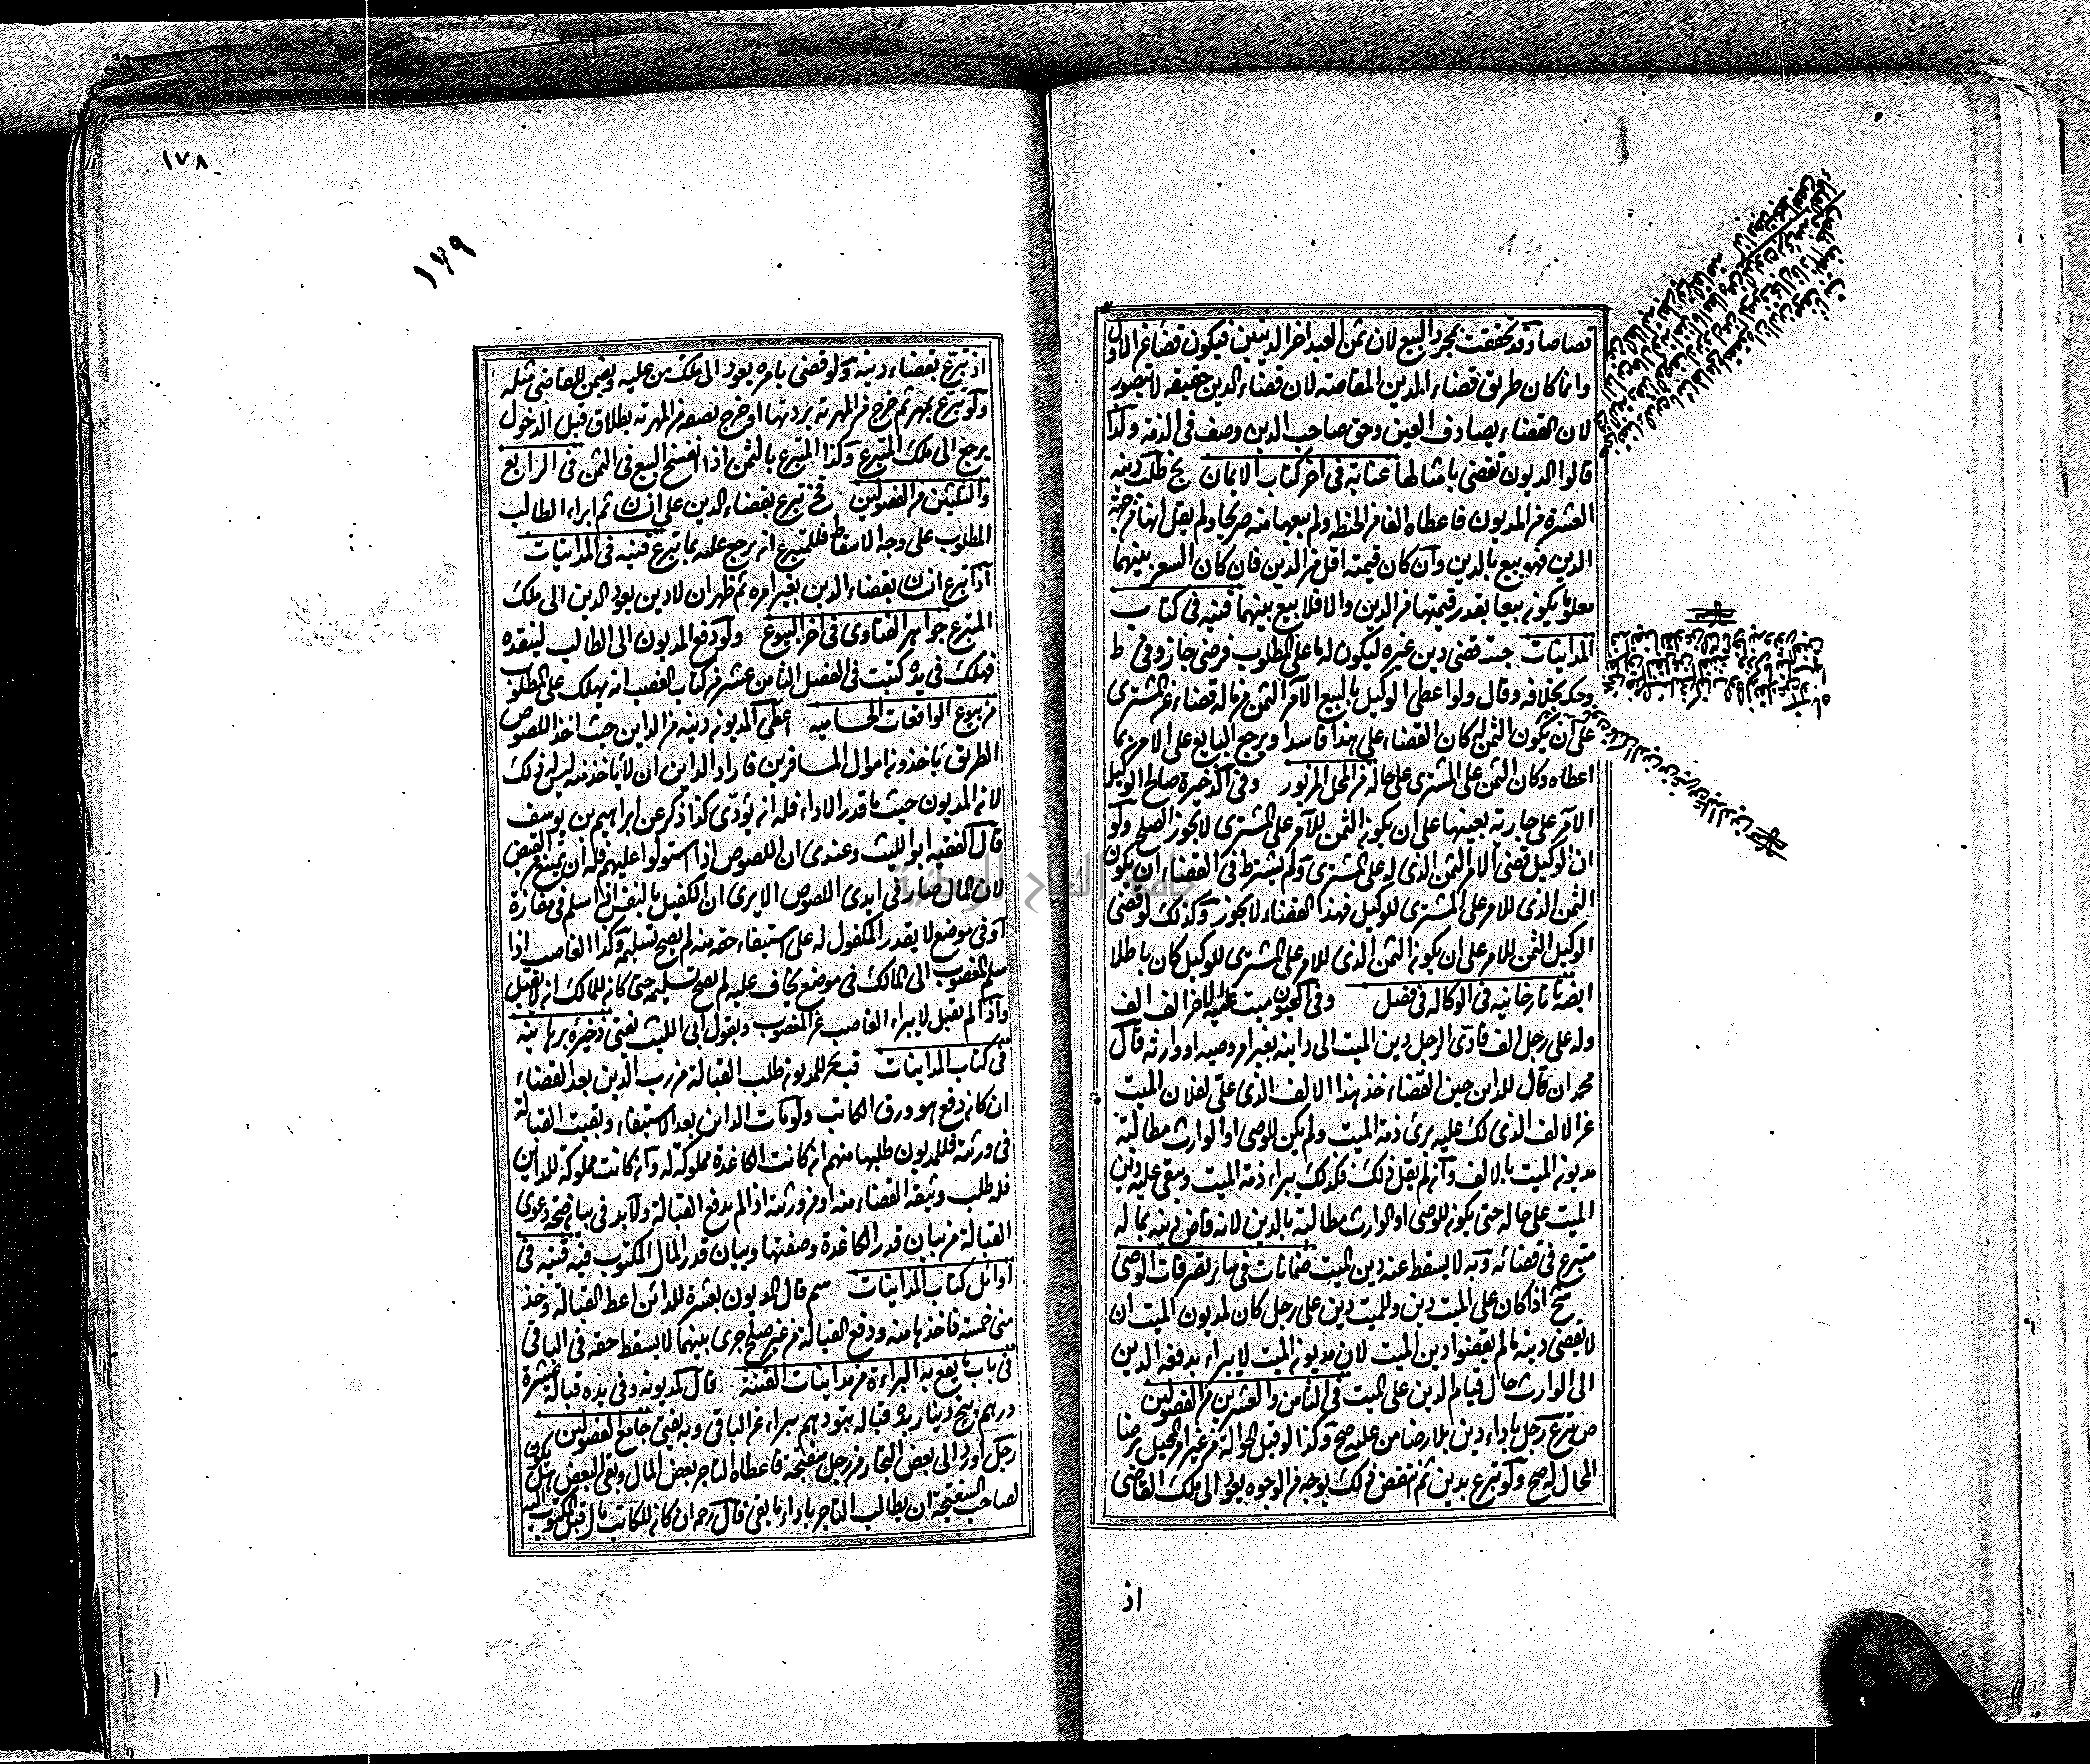 قصاصا وقد تحققت بمجرد البيع لان ثمن العبد اخر الدينين فيكون قضاء عن الاول
وانما كان طريق قضاء الدين المقاصة لان قضاء الدين حقيقة لا يتصور
لان القضاء يصادف العين وحق صاحب الدين وصف فى الذمة وكذا
قالوا الديون تقضى بامثالها عناية فى اخر كتاب الايمان نج طلب دينه
العشرة من المديون فاعطاه الفا من الحنطة ولم يبعها منه صريحا ولم يقل انها من جهة
الدين فهو بيع بالدين وان كان قيمته اقل من الدين فان كان السعر بينهما
معلوما يكون بيعا بقدر قيمتها من الدين والا فلا بيع بينهما قنيه فى كتاب
المداينات جت قضى دين غيره ليكون له ما على المطلوب فرضى جاز وفى ط
وحكه بخلافه وقال ولو اعطى الوكيل بالبيع الآمر الثمن من ماله قضاء عن المشترى
على ان يكون الثمن له كان القضاء على هذا فاسدا ويرجع البايع على الامر بما
اعطاه وكان الثمن على المشترى على حاله من المحل المزبور وفى الذخيرة صالح الوكيل
الآمر على جارته بعينها على ان يكون الثمن للآمر على المشترى لا يجوز الصلح ولو
ان الوكيل قضى الامر الثمن الذى له على المشترى ولم يشترط فى القضاء ان يكون
الثمن الذى للامر على المشترى للوكيل فهذا القضاء لا يجوز وكذلك لو قضى
الوكيل الثمن للامر على ان يكون الثمن الذى للامر على المشترى للوكيل كان باطلا
ايضه تاتارخانيه فى الوكاله فى فصل وفى العيون ميت عليه لاخر الف الف
وله على رجل الف فادى الرجل دين الميت الى داينه بغير امر وصيه او وارثه قال
محمد ان قال للداين حين القضاء خذ هذا الالف الذى على لفلان الميت
عن الالف الذى لك عليه برئ ذمة الميت ولم يكن للوصى او الوارث مطالبة
مديون الميت بالالف وان لم يقل ذلك فكذلك يبراء ذمة الميت ويبقى عليه دين
الميت على حاله حتى يكون للوصى او الوارث مطالبة بالدين لانه قاض دينه بماله
متبرع فى قضائه وبه لا يسقط عنه دين الميت ضمانات فى سائر تصرفات الوصى
صح اذا كان على الميت دين وللميت دين على رجل كان لمديون الميت ان
لا يقضى دينه ما لم يقضوا دين الميت لان مديون الميت لا يبراء بدفعه الدين
الى الوارث حال قيام الدين على الميت فى الثامن والعشرين من الفصولين
ص تبرع رجل باداء دين بلا رضا من عليه صح وكذا لو قبل الحوالة من غير امر المحيل برضا
المحال له صح ولو تبرع بدين ثم انتقض ذلك بوجه من الوجوه يعود الى ملك القاضى
اذ
١٧٨
١٦٩
اذ تبرع بقضاء دينه ولو قضى بامره يعود الى ملك من عليه ويضمن للقاضى مثله
ولو تبرع بمهر ثم خرج من المهرية بردتها او خرج نصفه من المهرية بطلاق قبل الدخول
يرجع الى ملك المتبرع وكذا المتبرع بالثمن اذا انفسخ البيع فى الثمن فى الرابع
والثلثين من الفصولين فخ تبرع بقضاء الدين على انسان ثم ابراء الطالب
المطلوب على وجه الاسقاط فللمتبرع ان يرجع عليه بما تبرع قنيه فى المداينات
اذا تبرع انسان بقضاء الدين بغير امره ثم ظهر ان لا دين يعود الدين الى ملك
المتبرع جواهر الفتاوى فى اخر البيوع ولو دفع المديون الى الطالب لينقده
فهلك فى يده كتبت فى الفصل الثامن عشر من كتاب الغصب انه يهلك على المطلوب
من بيوع الواقعات الحساميه اعطى المديون دينه من الداين حيث اخذ اللصوص
الطريق ياخذون اموال المسافرين فاراد الداين ان لا ياخذ منه ليس له ذلك
لان المديون حيث ما قدر الاداء فله ان يؤدى كذا ذكر عن ابراهيم بن يوسف
قال الفقيه ابو الليث وعندى ان اللصوص اذا استولوا عليهم فله ان يمتنع عن القبض
لان المال صار فى ايدى اللصوص الا يرى ان الكفيل بالنفس اذا سلم فى مفازة
او فى موضع لا يقدر المكفول له على استيفاء حقه منه لم يصح تسليمه وكذا الغاصب اذا
سلم المغصوب الى المالك فى موضع يخاف عليه لم يصح تسليمه حتى كان للمالك ان لا يقبل
واذا لم يقبل لا يبراء الغاصب عن المغصوب وبقول ابى الليث يفتى ذخيره برهانيه
فى كتاب المداينات قبخ للمديون طلب القبالة من رب الدين بعد القضاء
ان كان دفع هو ورق الكاتب ولو مات الداين بعد الاستيفاء وبقيت القبالة
فى ورثته فللمديون طلبها منهم ان كانت الكاغدة مملوكة له وان كانت مملوكة للداين
فله طلب وثيقة القضاء منه او من ورثته اذا لم يدفع القبالة ولا بد فى بيان صحة دعوى
القبالة من بيان قدر الكاغدة وصفتها وبيان قدر المال المكتوب فيه قنيه فى
اوائل كتاب المداينات سم قال المديون بعشرة للدائن اعط القبالة وخذ
منى خمسة فاخذها منه ودفع القبالة من غير صلح جرى بينهما لا يسقط حقه فى الباقى
فى باب ما يقع به البراءة من مداينات القنية قال لمديونه وفى يده قبالة عشرة
درهم بنج دينار بده قباله بتو دهم يبراء عن الباقى وبه يفتى جامع الفصولين
رجل اورد الى بعض التجار من رجل سفتجة فاعطاه التاجر بعض المال وبقى البعض هل يكون
لصاحب السفتجة ان يطالب التاجر باداء ما بقى قال رحمه ان كان للكاتب مال قبل المكتوب اليه